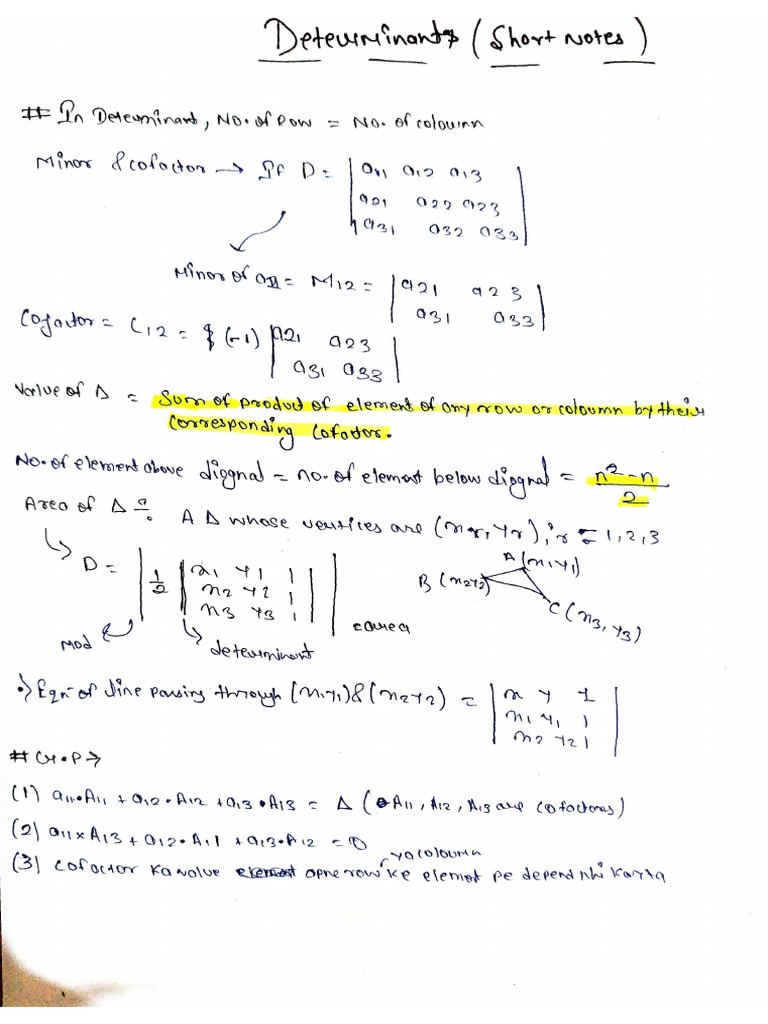 Determinants (Short Notes)
# In Determinant, No. of Row = No. of coloumn
Minor & cofactor → If D = | a11 a12 a13 |
| a21 a22 a23 |
| a31 a32 a33 |
Minor of a12 = M12 = | a21 a23 |
| a31 a33 |
Cofactor = C12 = (-1) | a21 a23 |
| a31 a33 |
Value of Δ = Sum of product of element of any row or coloumn by their
Corresponding Cofactor.
No. of element above diognal = no. of element below diognal = n²-n / 2
Area of Δ :- A Δ whose vertices are (xr, yr), r = 1, 2, 3
D = | 1/2 | x1 y1 1 | |
| x2 y2 1 |
| x3 y3 1 |
A(x1y1)
B(x2y2)
C(x3, y3)
= area
Mod
determinant
•) Eqn of line passing through (x1y1) & (x2y2) = | x y 1 |
| x1 y1 1 |
| x2 y2 1 |
# G.P →
(1) a11.A11 + a12.A12 + a13.A13 = Δ (A11, A12, A13 are cofactores)
(2) a11×A13 + a12.A11 + a13.A12 = 0
(3) cofactor ka value apne row ya coloumn ke elemet pe depend nhi karta